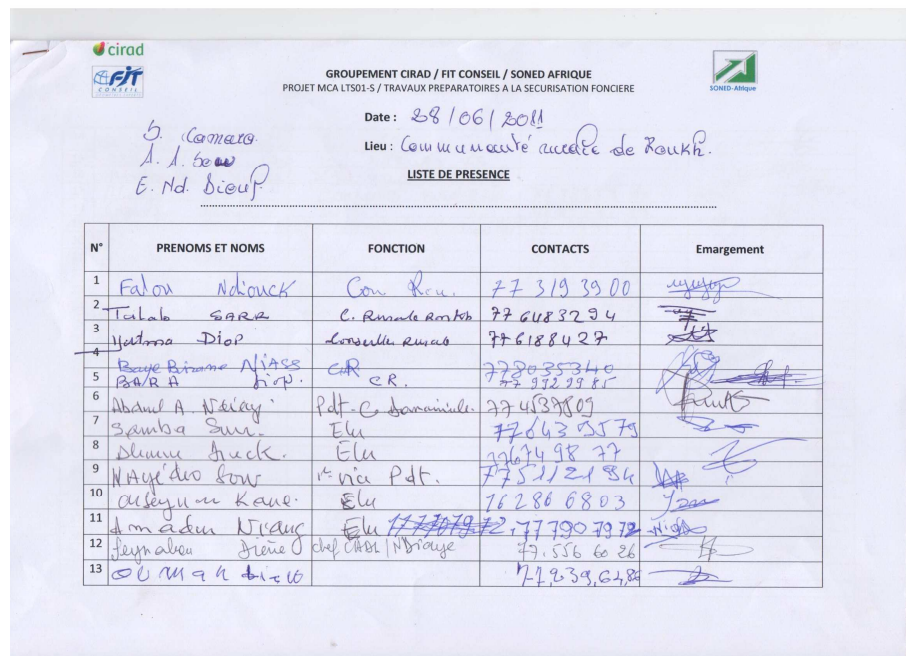 cirad
FIT
CONSEIL
GROUPEMENT CIRAD / FIT CONSEIL / SONED AFRIQUE
PROJET MCA LTS01-S / TRAVAUX PREPARATOIRES A LA SECURISATION FONCIERE
SONED-Afrique
Date : 28/06/2011
Lieu : Communauté rurale de Ronkh.
S. Camara.
A. A. Sow
E. Nd. Diouf.
LISTE DE PRESENCE
N° PRENOMS ET NOMS FONCTION CONTACTS Emargement
1 Falou Ndiouck Con Ru. 77 319 39 00
2 Talab SARR C. Rurale Ronkh 77 6483294
3 Yatma DIOP Conseiller Rural 776188427
4 Baye Birame NIASS CR 778035340
5 BARA Diop. CR. 77 992 29 85
6 Abdoul A. Ndiay. Pdt. C 774537809
7 Samba Elu 776439579
8 Elu 77674 98 77
9 Sow 1er vice Pdt. 775112194
10 Ousseynou Kane. Elu 76 286 6803
11 Amadou Niang Elu 77790 7972
12 Seynabou Diene chef CADL / NDiaye 77.556 60 26
13 77,239,64,86